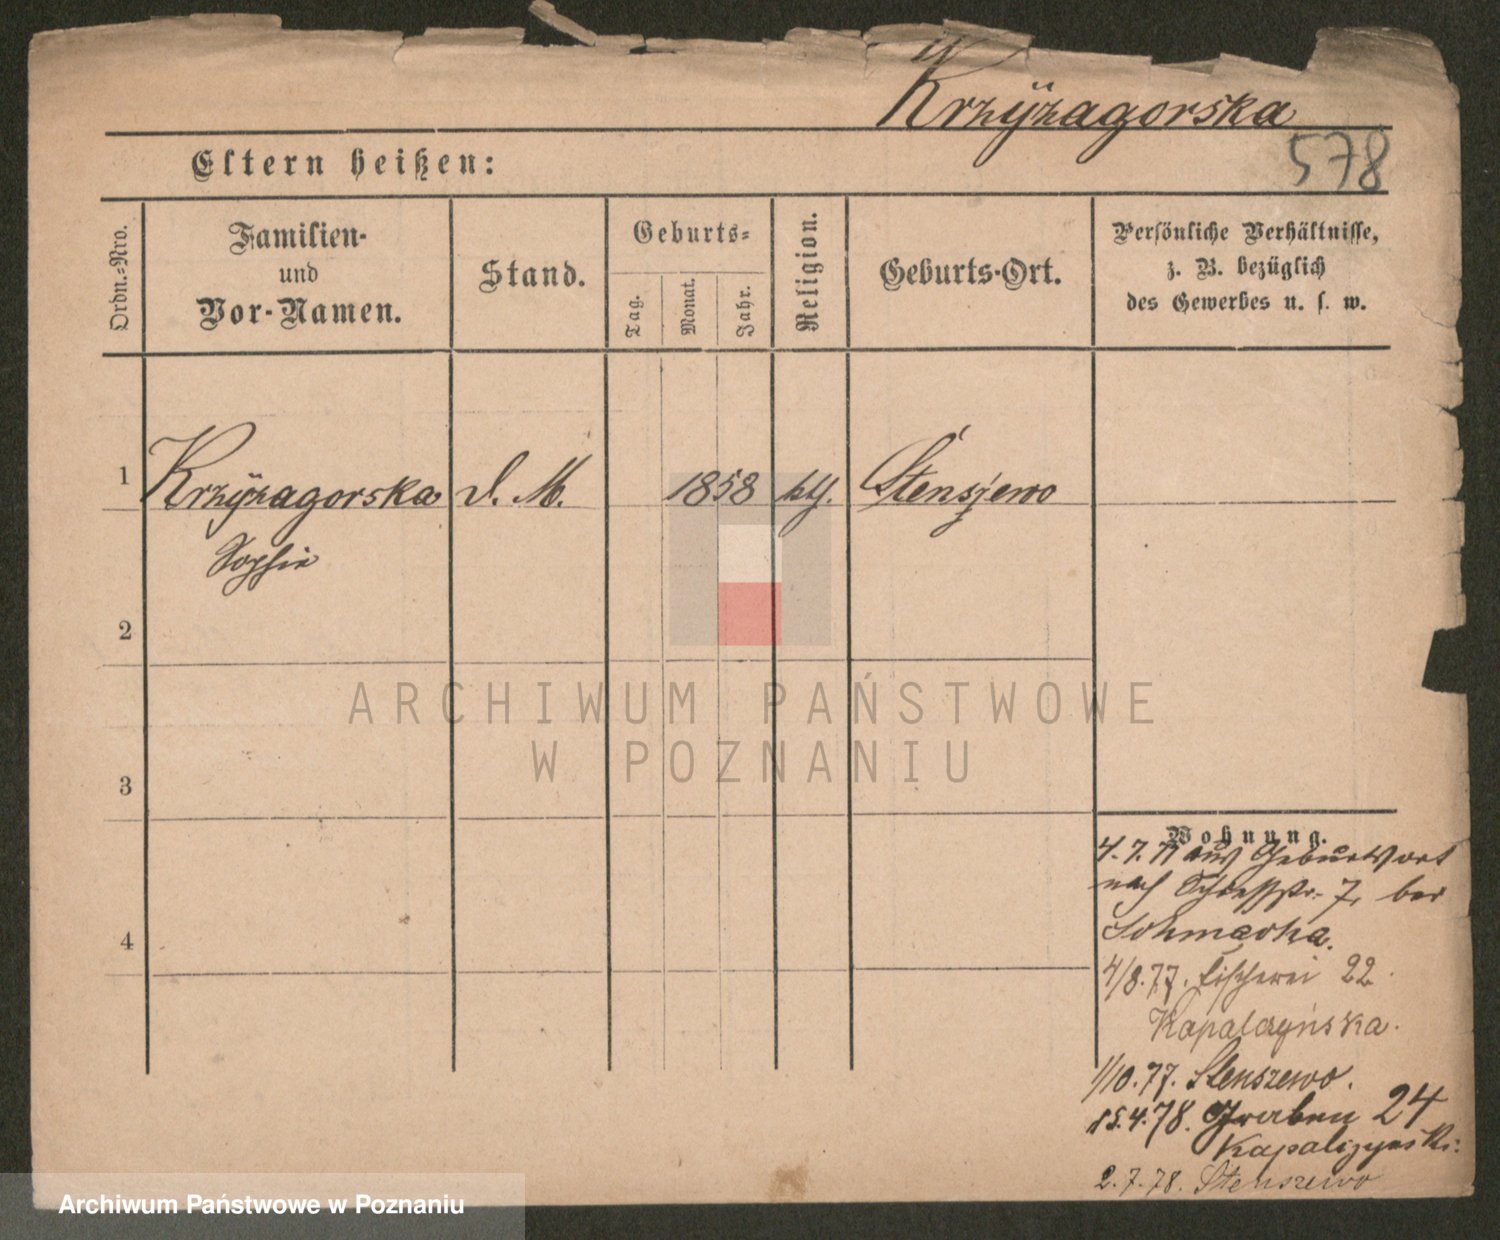 Krzÿżagorska
578
Eltern heißen:
Ordn.-Nro.
Familien-
und
Vor-Namen.
Stand.
Geburts-
Tag.
Monat.
Jahr.
Religion.
Geburts-Ort.
Persönliche Verhältnisse,
z. B. bezüglich
des Gewerbes u. s. w.
1 Krzÿżagorska d. M. 1858 kth. Stenszewo
Sophie
2
3
4
Wohnung.
4.7.77 aus Geburtsort
nach 7, bei
4/8.77. Fischerei 22.
Kapalczyńska.
1/10.77. Stenszewo.
15.4.78. Graben 24
Kapalczynski:
2.7.78. Stenszewo
ARCHIWUM PAŃSTWOWE
W POZNANIU
Archiwum Państwowe w Poznaniu